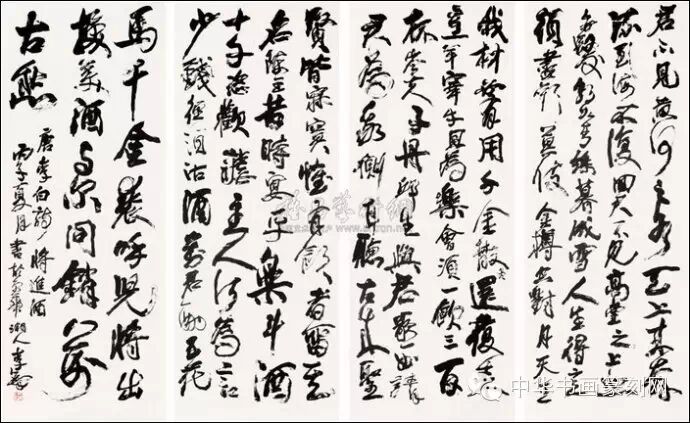 君不見黃河之水天上來奔
流到海不復回 不見高堂
髮朝如青絲暮成雪人生得意
須盡歡莫使金樽空對月天生
我材必有用千金散盡還復來
烹羊宰牛且為樂會須一飲三百
杯岑夫子丹邱生與君歌一曲請
君為我側耳聽古來聖
賢皆寂寞惟有飲者留其
名陳王昔時宴平樂斗酒
十千恣歡謔主人何為言
少錢徑須沽酒 君酌五花
馬千金裘呼兒將出
換美酒與爾同銷萬
古愁
唐李白詩將進酒
丙子夏月書於
中华书画篆刻网